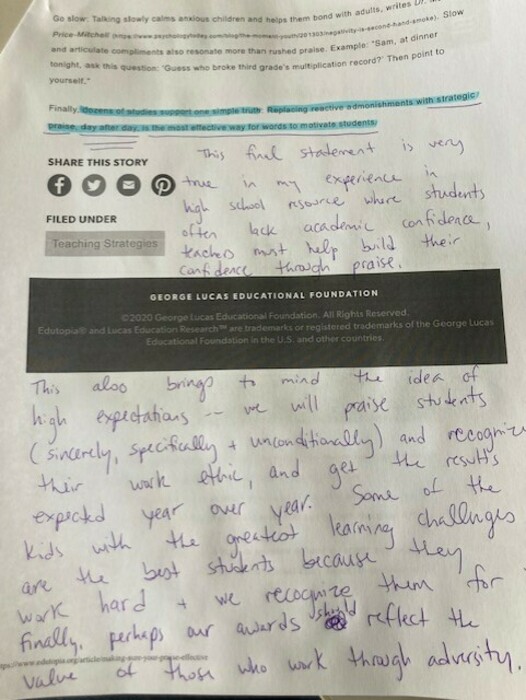 Go slow: Talking slowly calms anxious children and helps them bond with adults, writes Dr.
Price-Mitchell (https://www.psychologytoday.com/blog/the-moment-youth/201303/negativity-is-second-hand-smoke). Slow
and articulate compliments also resonate more than rushed praise. Example: "Sam, at dinner
tonight, ask this question: 'Guess who broke third grade's multiplication record?' Then point to
yourself."
Finally, dozens of studies support one simple truth: Replacing reactive admonishments with strategic
praise, day after day, is the most effective way for words to motivate students.
SHARE THIS STORY
FILED UNDER
Teaching Strategies
This final statement is very
true in my experience in
high school resource where students
often lack academic confidence,
teachers must help build their
confidence through praise.
GEORGE LUCAS EDUCATIONAL FOUNDATION
©2020 George Lucas Educational Foundation. All Rights Reserved.
Edutopia® and Lucas Education Research™ are trademarks or registered trademarks of the George Lucas
Educational Foundation in the U.S. and other countries.
This also brings to mind the idea of
high expectations -- we will praise students
(sincerely, specifically + unconditionally) and recognize
their work ethic, and get the results
expected year over year. Some of the
kids with the greatest learning challenges
are the best students because they
work hard + we recognize them for
finally, perhaps our awards should reflect the
value of those who work through adversity.